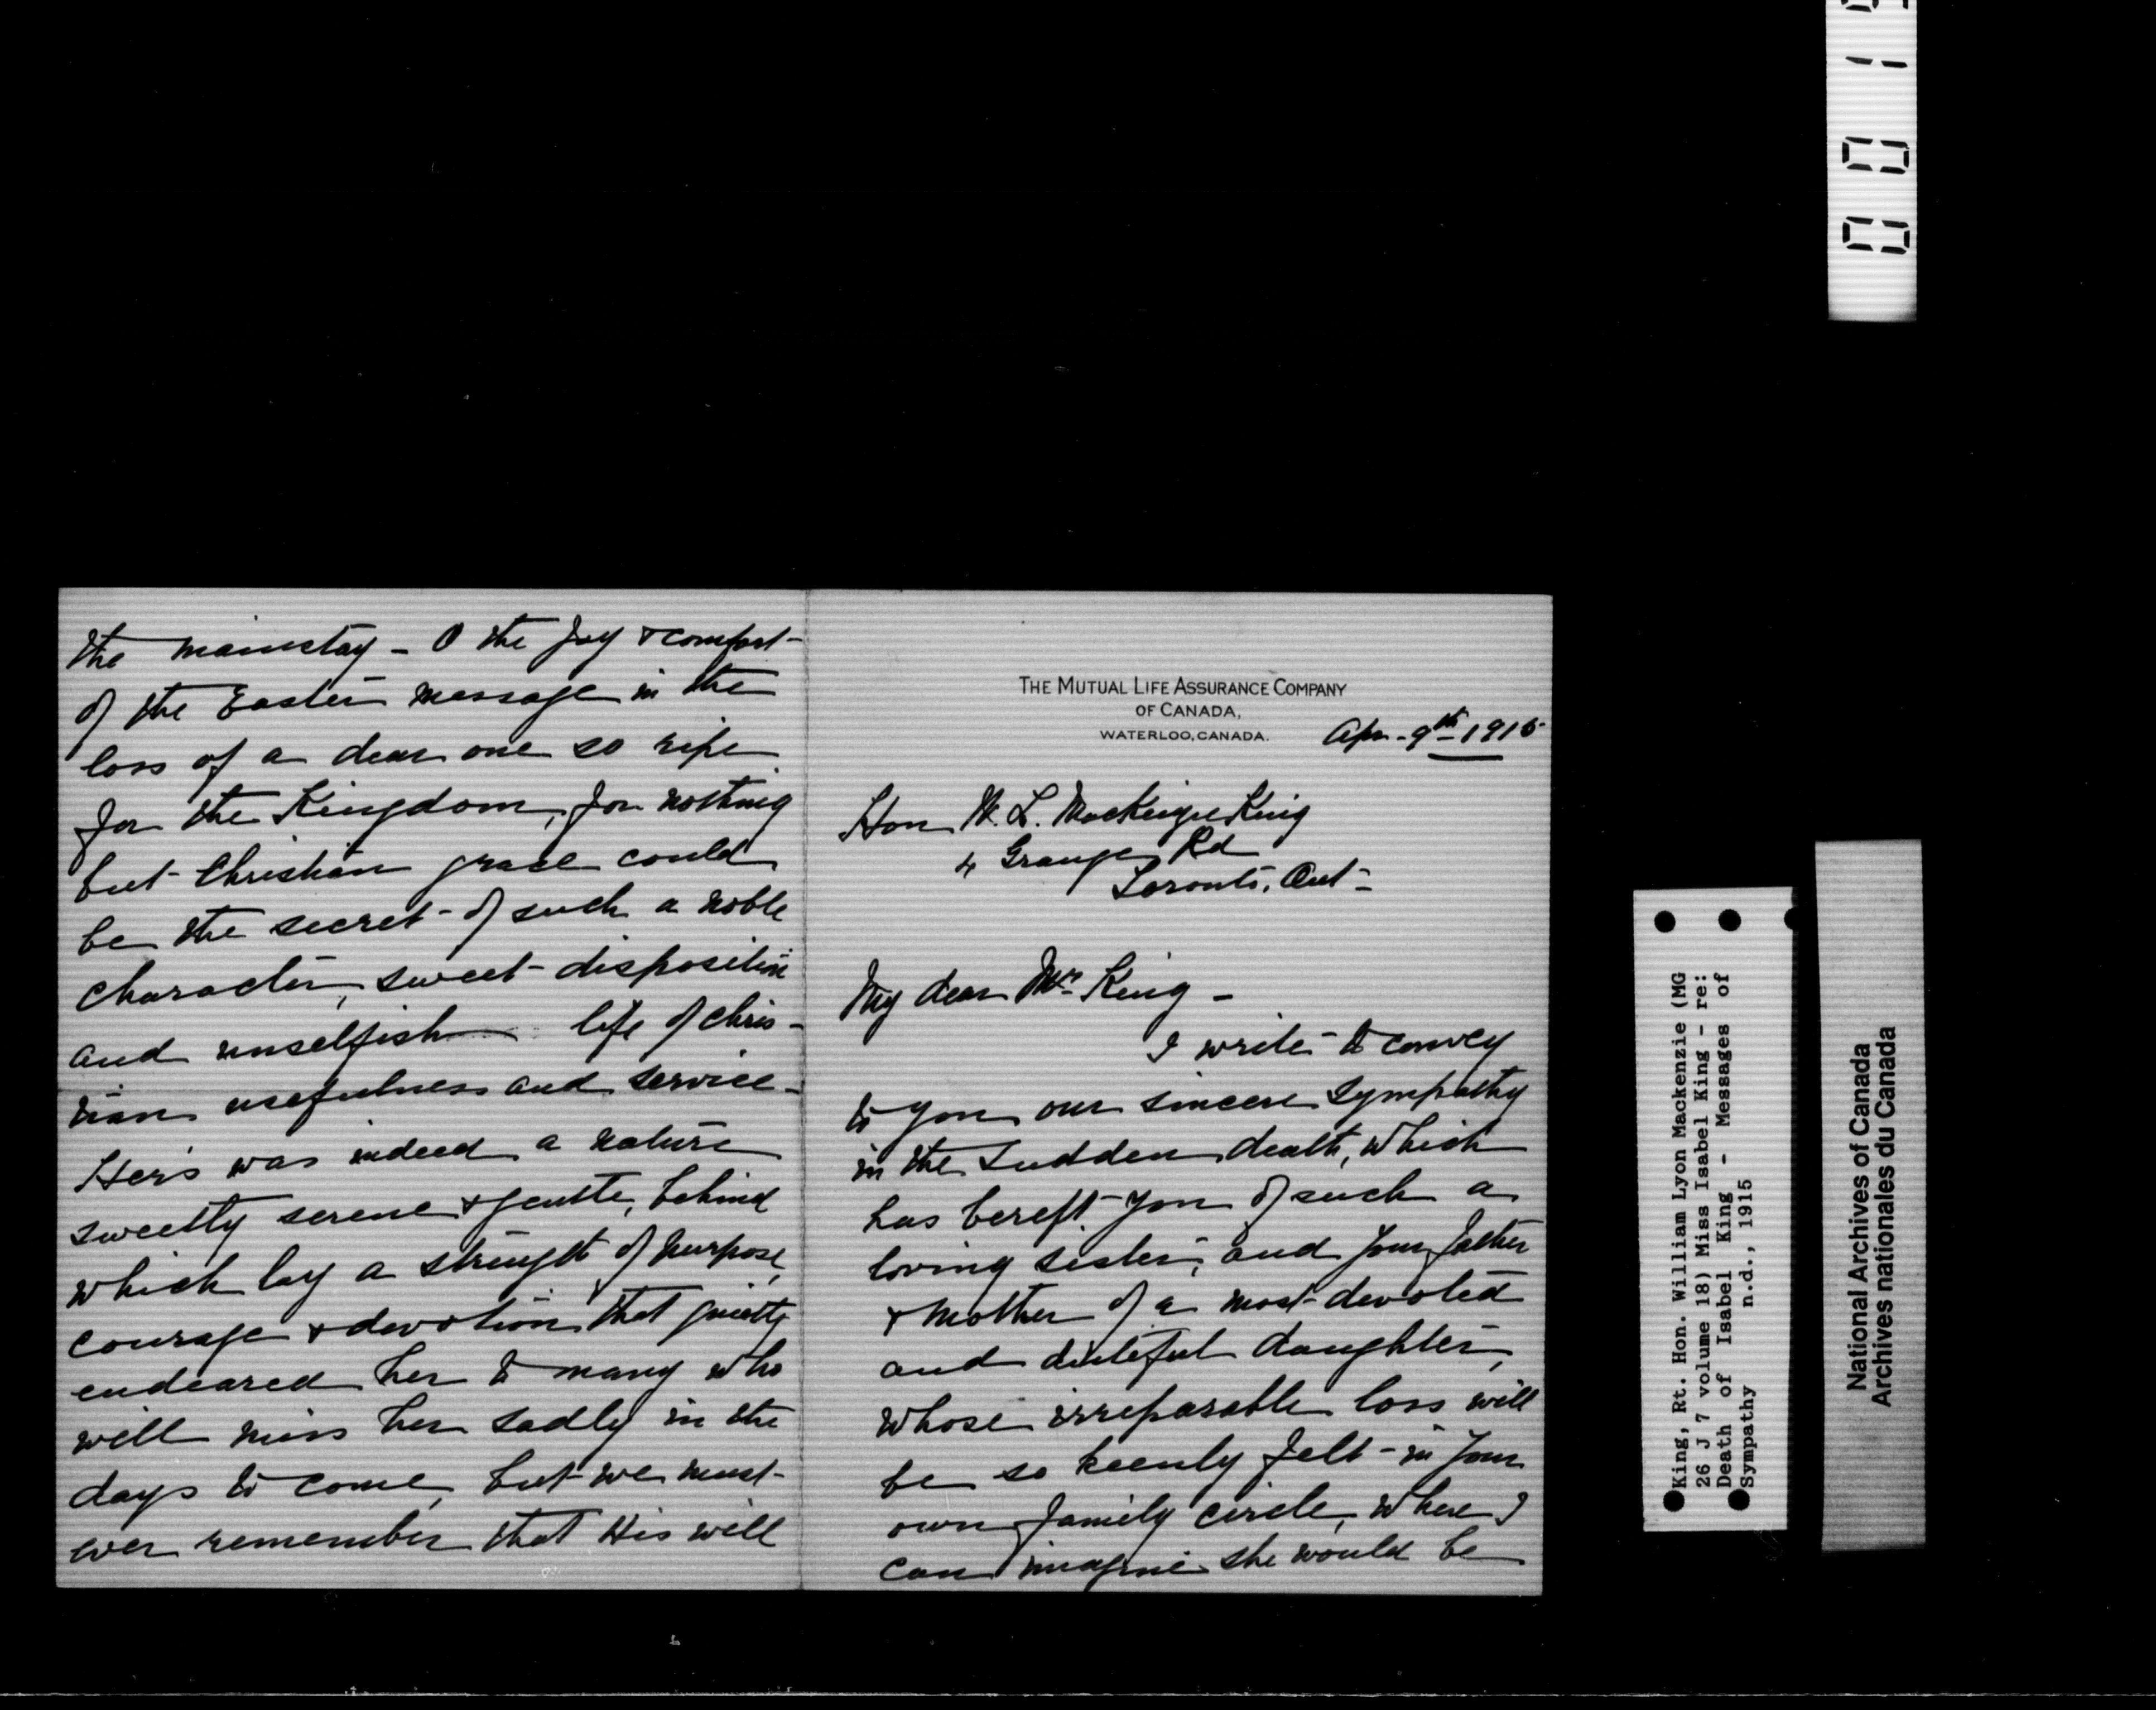 THE MUTUAL LIFE ASSURANCE COMPANY
OF CANADA,
WATERLOO, CANADA.
Apr. 9th 1915
Hon W. L. MacKenzie King
4 Grange Rd
Toronto, Ont-
My dear Mr King -
I write to convey
to you our sincere sympathy
in the sudden death, which
has bereft you of such a
loving sister, and your father
& mother of a most devoted
and dutiful daughter,
whose irreparable loss will
be so keenly felt - in your
own family circle, where I
can imagine she would be
the mainstay - O the joy & comfort
of the Easter message in the
loss of a dear one so ripe
for the Kingdom, for nothing
but Christian grace could
be the secret of such a noble
character, sweet disposition
and unselfish life of Chris-
tian usefulness and service -
Hers was indeed a nature
sweetly serene & gentle, behind
which lay a strength of purpose,
courage & devotion that quietly
endeared her to many who
will miss her sadly in the
days to come, but we must
ever remember that His will
King, Rt. Hon. William Lyon Mackenzie (MG
26 J 7 volume 18) Miss Isabel King - re:
Death of Isabel King - Messages of
Sympathy n.d., 1915
National Archives of Canada
Archives nationales du Canada